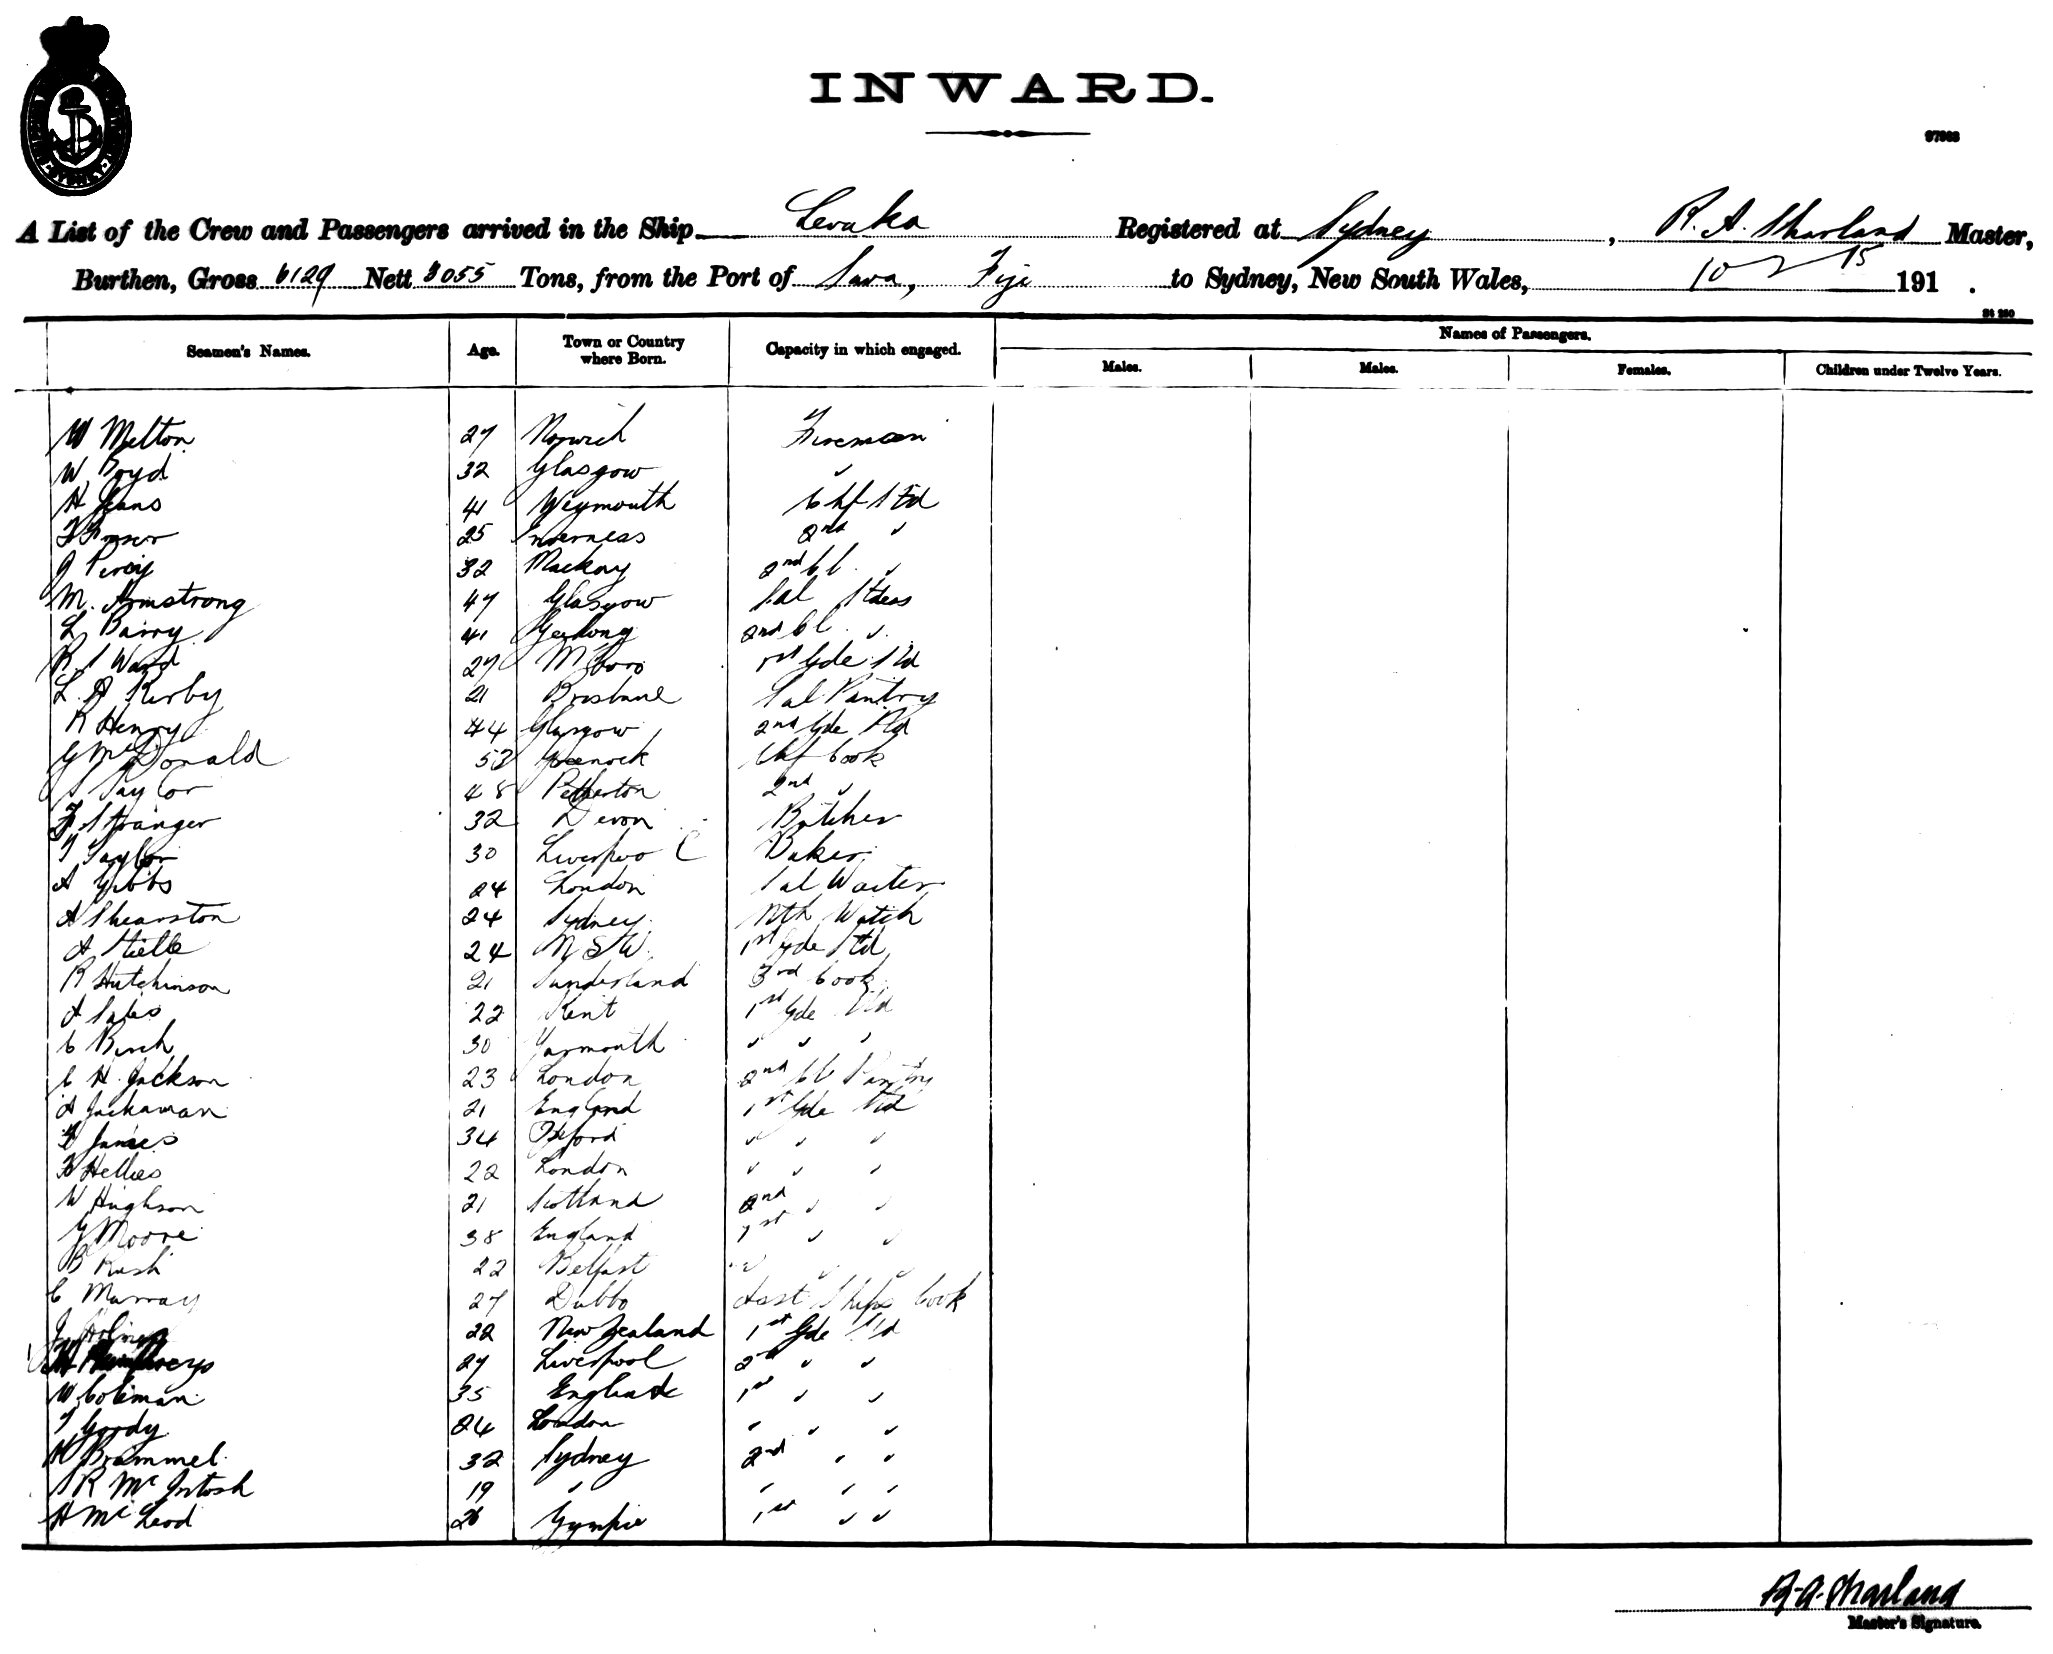 INWARD.
97303
A List of the Crew and Passengers arrived in the Ship Levuka Registered at Sydney, R. A. Sharland Master,
Burthen, Gross 6129 Nett 3055 Tons, from the Port of Suva, Fiji to Sydney, New South Wales, 10 2 15 191 .
Seamen's Names. Age. Town or Country where Born. Capacity in which engaged. Names of Passengers.
Males. Males. Females. Children under Twelve Years.
W Melton 27 Norwich Fireman
W Boyd 32 Glasgow "
H Jeans 41 Weymouth Chf Std
F Fraser 25 Inverness 2nd "
J Percy 32 Mackay 2nd Cl. "
M. Armstrong 47 Glasgow Sal Stdess
L Barry 41 Geelong 2nd Cl. "
R. S Ward 27 M'boro 1st Gde Std
L. A Kirby 21 Brisbane Sal Pantry
R Henry 44 Glasgow 2nd Gde Std
G McDonald 53 Greenock Chf Cook
S Taylor 48 Petherton 2nd "
F Stranger 32 Devon Butcher
T Taylor 30 Liverpool Baker
A Gibbs 24 London Sal Waiter
A Shearston 24 Sydney Nth Watch
A Stielle 24 N S W. 1st Gde Std
R Hutchinson 21 Sunderland 3rd Cook
A 22 Kent 1st Gde Std
C Birch 30 Yarmouth " " "
C H. Jackson 23 London 2nd Cl Pantry
A Jackaman 21 England 1st Gde Std
James 34 Oxford " " "
Hellies 22 London " " "
W Hughson 21 Scotland 2nd " "
G Moore 38 England 1st " "
B Rush 22 Belfast " " "
C Murray 27 Dubbo Asst Ships Cook
J Holmes 22 New Zealand 1st Gde Std
H Humphreys 27 Liverpool 2nd " "
W Coleman 35 England 1st " "
T Goody 24 London " " "
H Brammel 32 Sydney 2nd " "
S R McIntosh 19 " " " "
H McLeod 26 Gympie 1st " "
R. A. Sharland
Master's Signature.